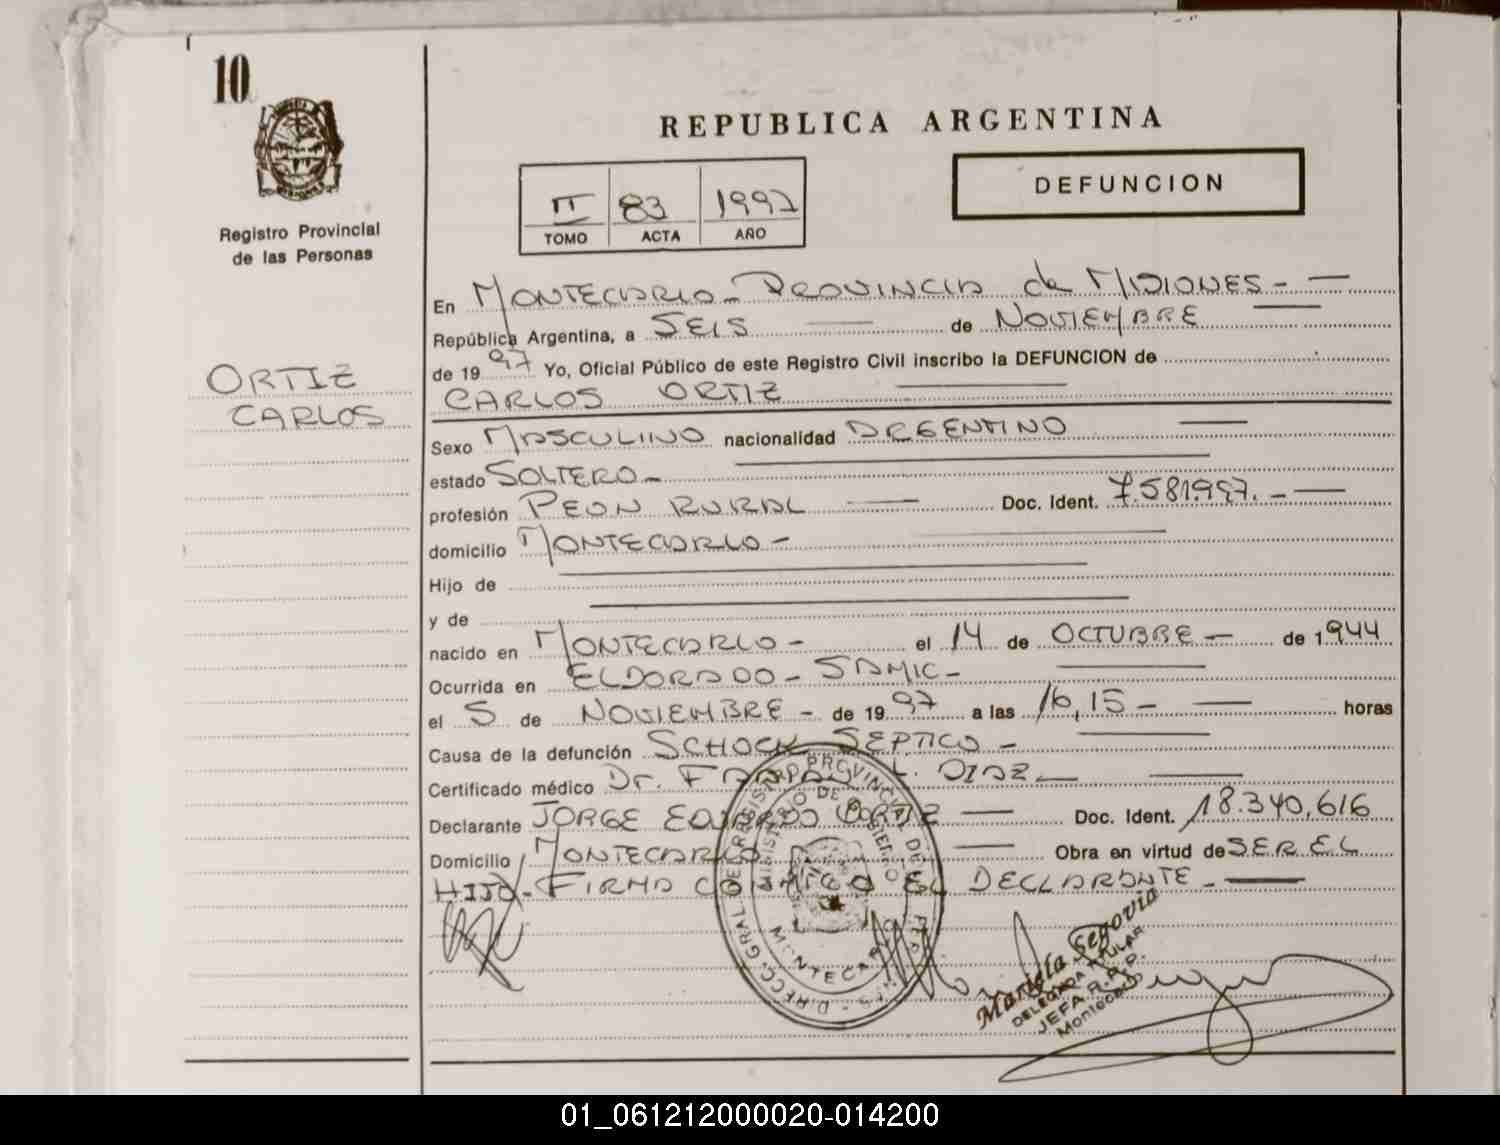 10
REPUBLICA ARGENTINA
DEFUNCION
II 83 1997
TOMO ACTA AÑO
Registro Provincial
de las Personas
ORTIZ
CARLOS
En MONTECARLO - PROVINCIA de MISIONES -
República Argentina, a SEIS de NOVIEMBRE
de 1997 Yo, Oficial Público de este Registro Civil inscribo la DEFUNCION de
CARLOS ORTIZ
Sexo MASCULINO nacionalidad ARGENTINO
estado SOLTERO -
profesión PEON RURAL Doc. Ident. 7.581.997. -
domicilio MONTECARLO -
Hijo de
y de
nacido en MONTECARLO - el 14 de OCTUBRE - de 1.944
Ocurrida en ELDORADO - SAMIC -
el 5 de NOVIEMBRE - de 1997 a las 16,15 - horas
Causa de la defunción SCHOCK SEPTICO -
Certificado médico Dr. L. DIAZ
Declarante JORGE EDUARDO ORTIZ Doc. Ident. 18.340.616
Domicilio MONTECARLO Obra en virtud de SER EL
HIJO - FIRMA CONMIGO EL DECLARANTE -
DIRECC. GRAL DEL REGISTRO PROVINCIAL DE LAS PERSONAS
MINISTERIO DE GOBIERNO
MONTECARLO
Mariela Segovia
DELEGADA TITULAR
JEFA R.P.P.
Montecarlo
01_061212000020-014200